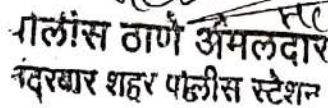 पोलीस ठाणे अंमलदार
नंदुरबार शहर पोलीस स्टेशन